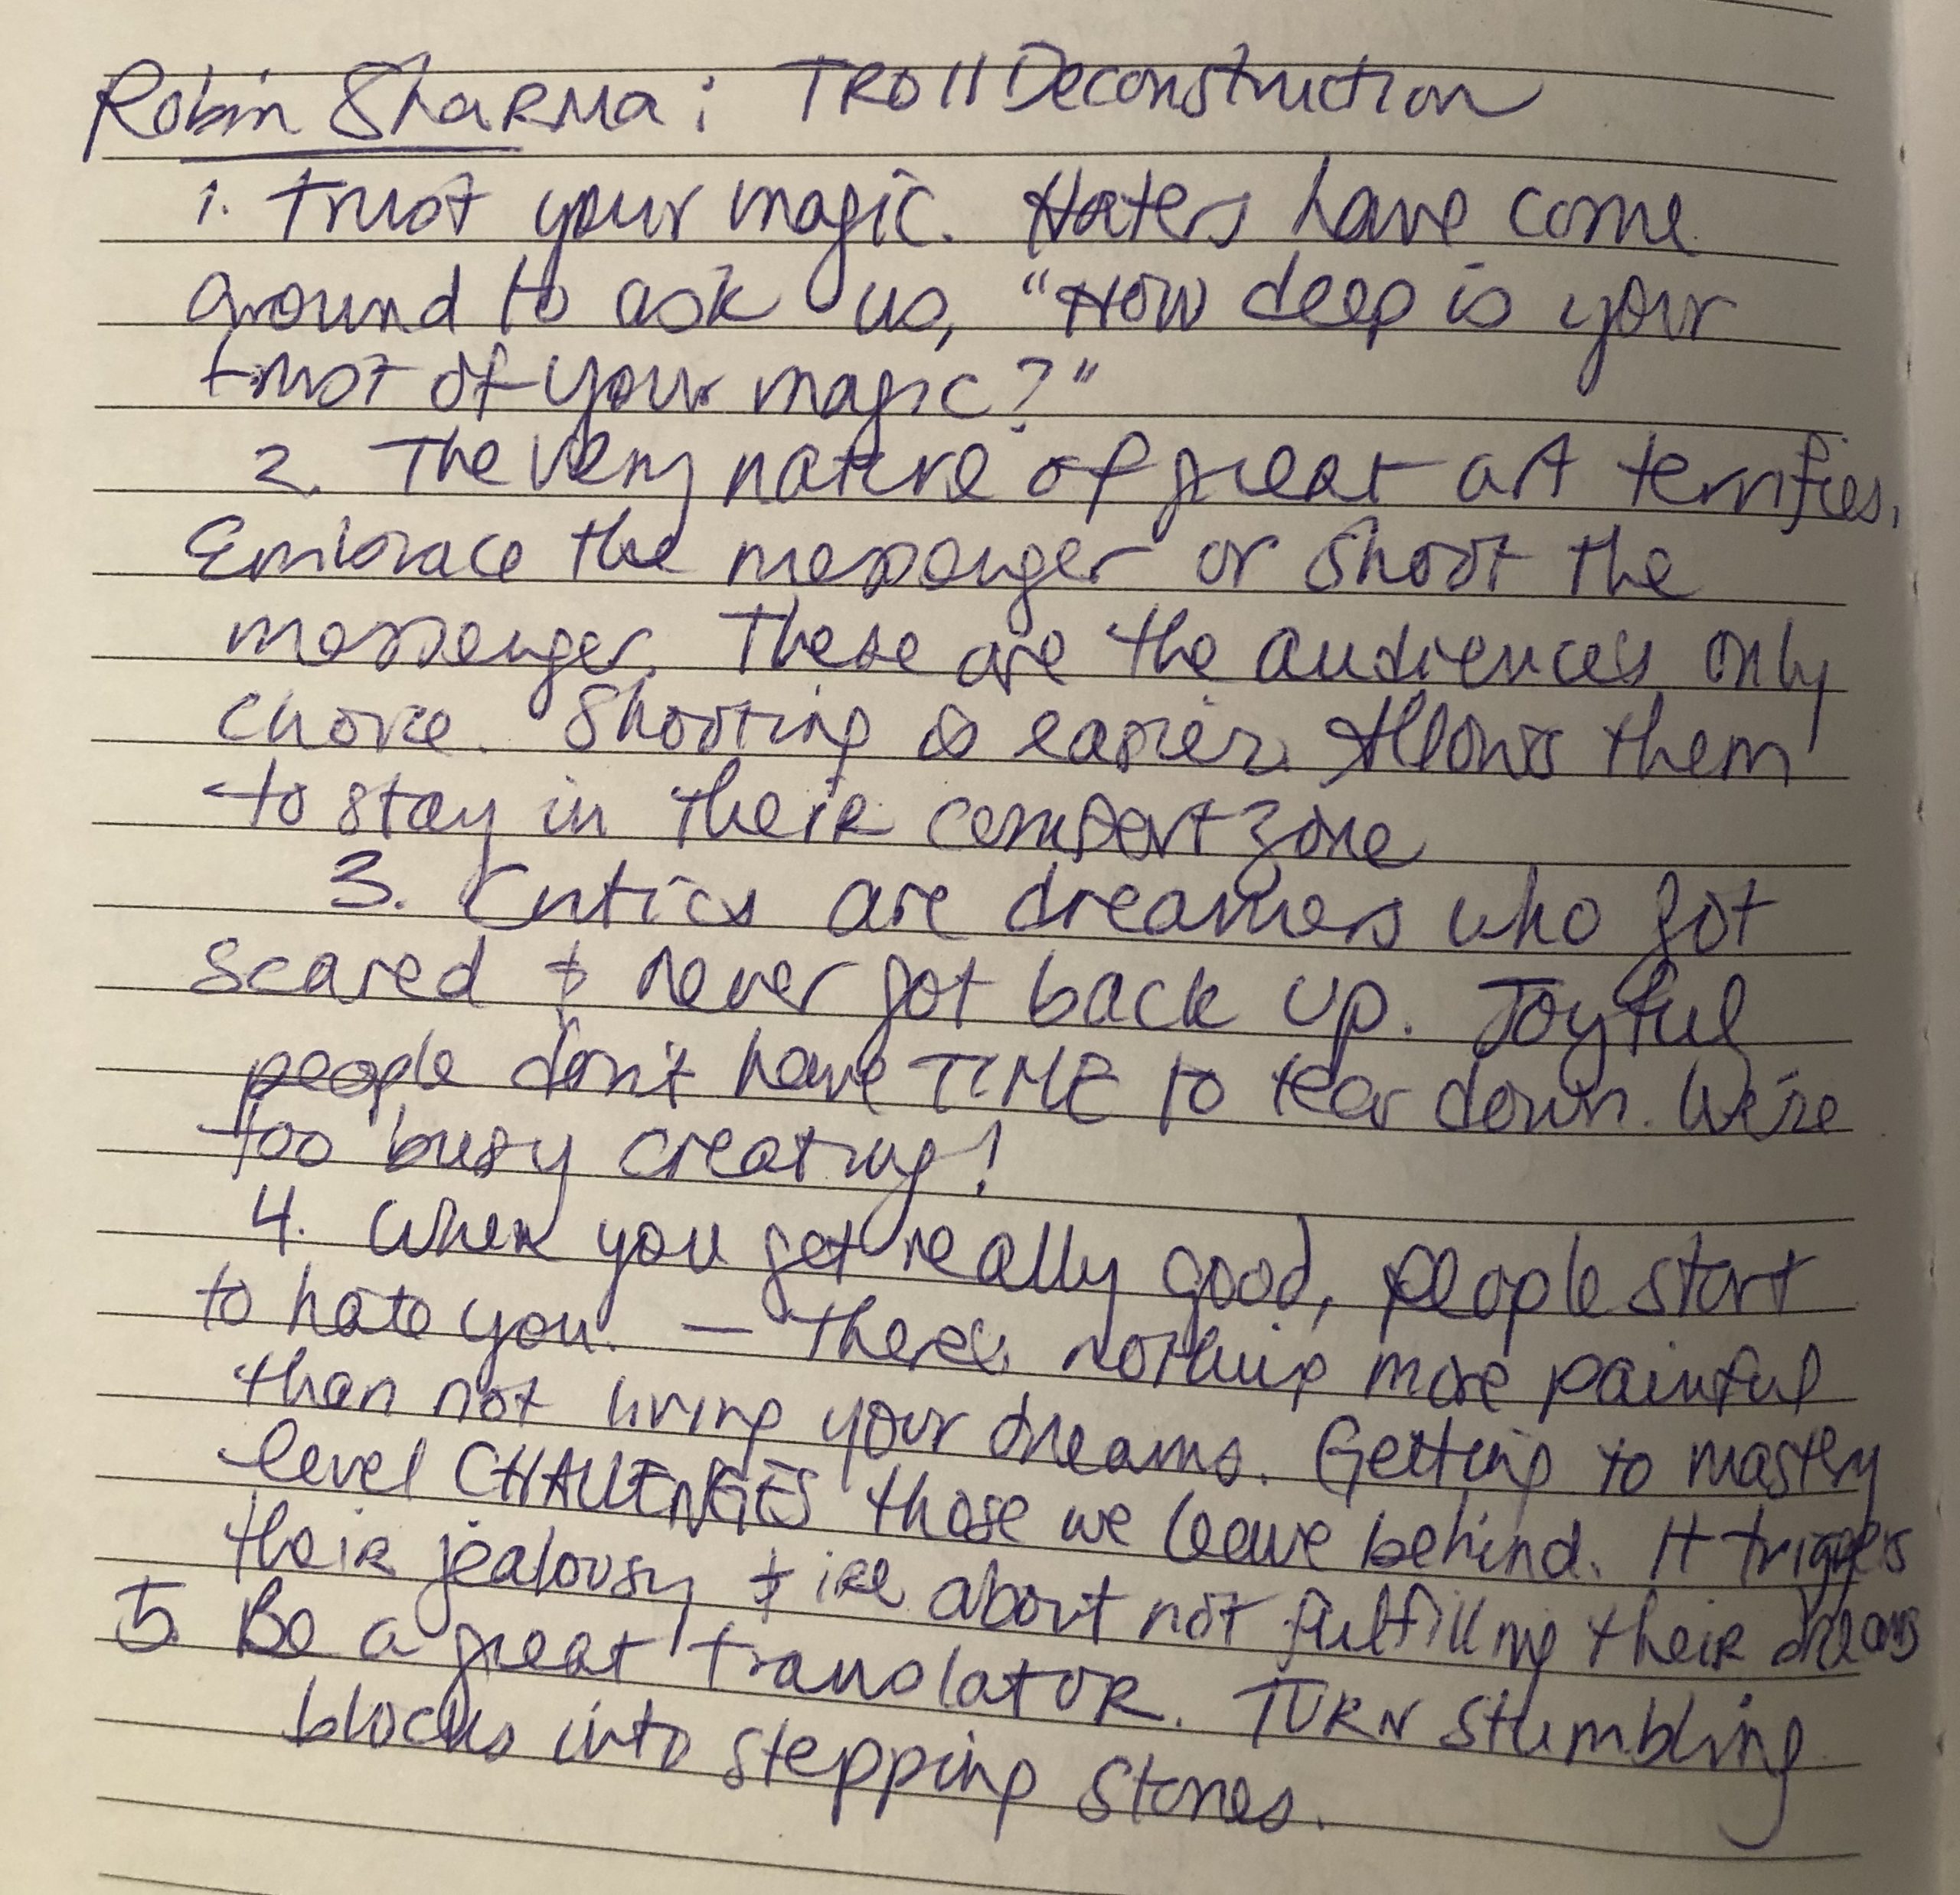 Robin Sharma: Troll Deconstruction
1. Trust your magic. Haters have come
around to ask us, "How deep is your
trust of your magic?"
2. The very nature of great art terrifies.
Embrace the messenger or shoot the
messenger. These are the audience's only
choice. Shooting is easier. Allows them
to stay in their comfort zone
3. Critics are dreamers who got
scared & never got back up. Joyful
people don't have TIME to tear down. We're
too busy creating!
4. When you get really good, people start
to hate you. — There's nothing more painful
than not living your dreams. Getting to mastery
level CHALLENGES those we leave behind. It triggers
their jealousy & ire about not fulfilling their dreams
5. Be a great translator. TURN stumbling
blocks into stepping stones.